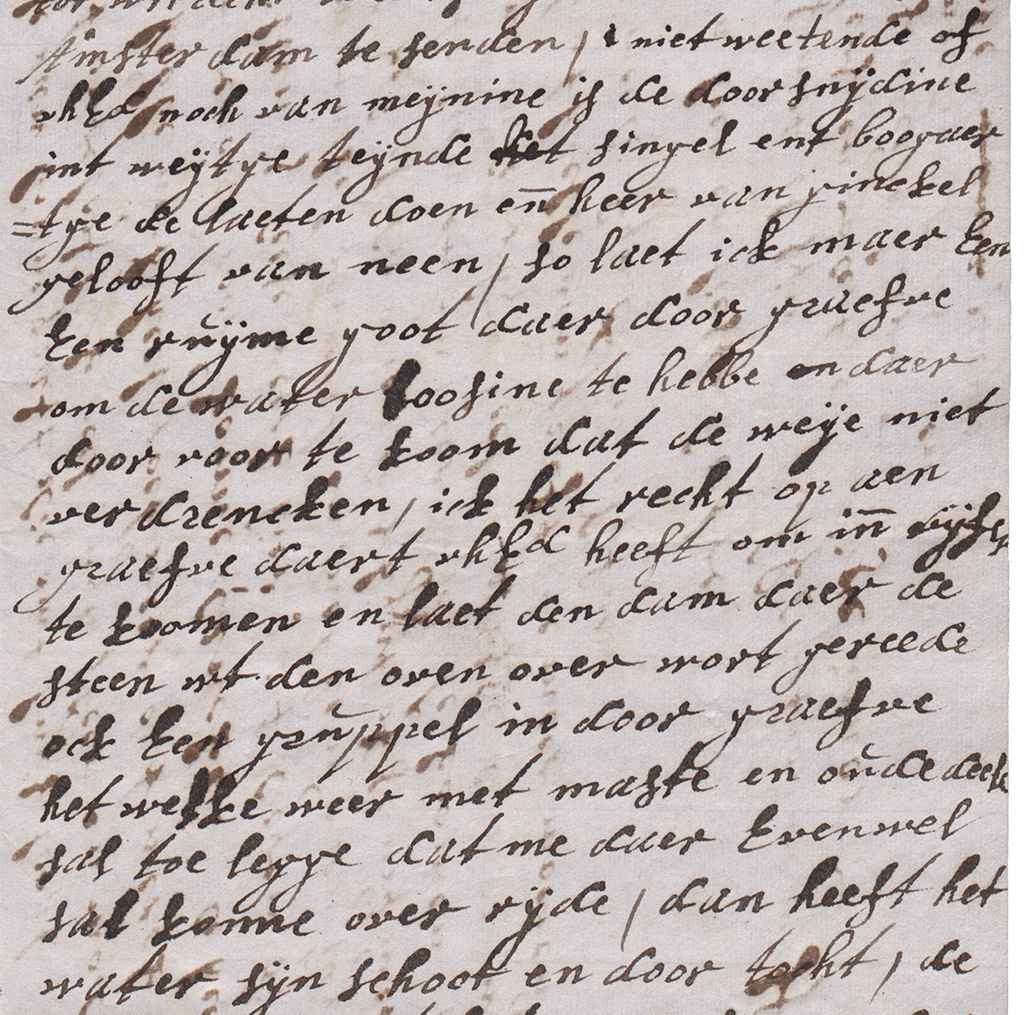 Amsterdam te senden / niet weetende of
vhEd noch van meijnine is de doorsnijdine
int weijtge teijnde het singel ent boogaer
=tge de laeten doen en̄ heer van ginckel
gelooft van neen / so laet ick maer Een
Een ruijme goot daer door graefve
om de water loosine te hebbe en daer
door voor te koom dat de weije niet
verdrencken / ick het recht op aen
graefve daert vhEd heeft om in̄
te koomen en laet den dam daer de
steen wt den oven over wort gereede
ock Een gruppel in door graefve
het welke weer met maste en oude deele
sal toe legge dat me daer Evenwel
sal konne over rijde / dan heeft het
water sijn schoot en door tocht / de